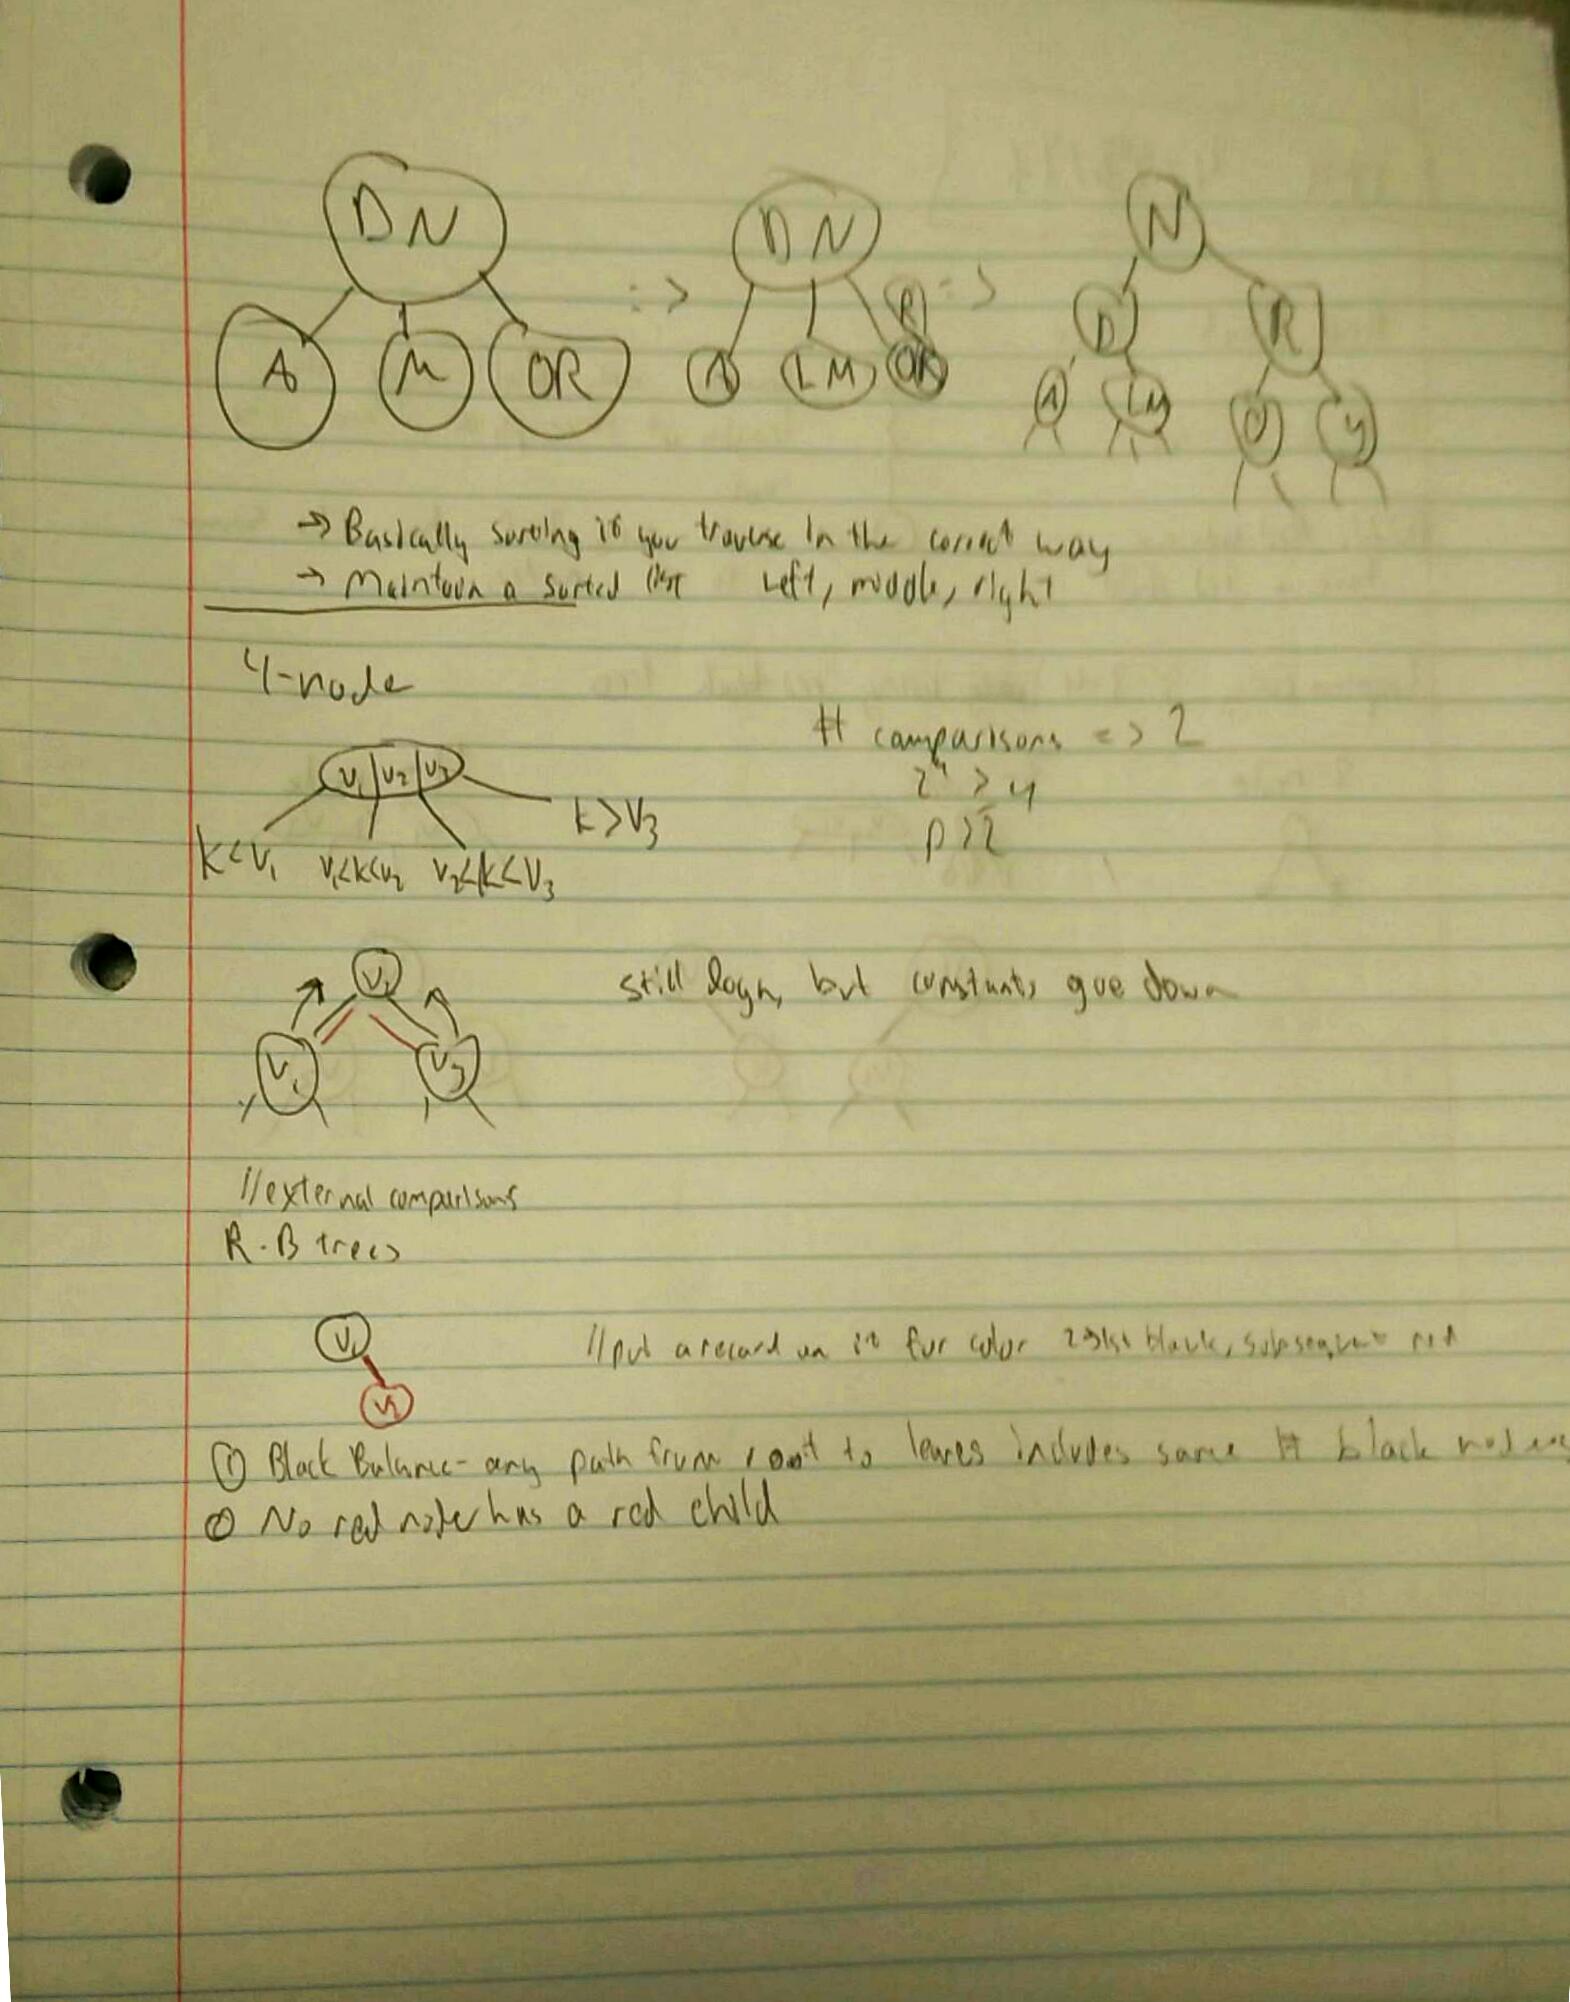 DN DN N
=> =>
A M OR A LM R OR D R
A LM O Y
→ Basically sorting if you traverse in the correct way
→ Maintain a sorted list Left, middle, right
4-node
# comparisons => 2
V1 | V2 | V3
2^n ≥ 4
n ≥ 2
k > V3
k < V1 V1<k<V2 V2<k<V3
V2
still logn, but constants goe down
V1 V3
//external comparisons
R-B trees
V1
//put a record on it for color => 1st black, subsequent red
V2
① Black Balance - any path from root to leaves includes same # black nodes
② No red node has a red child